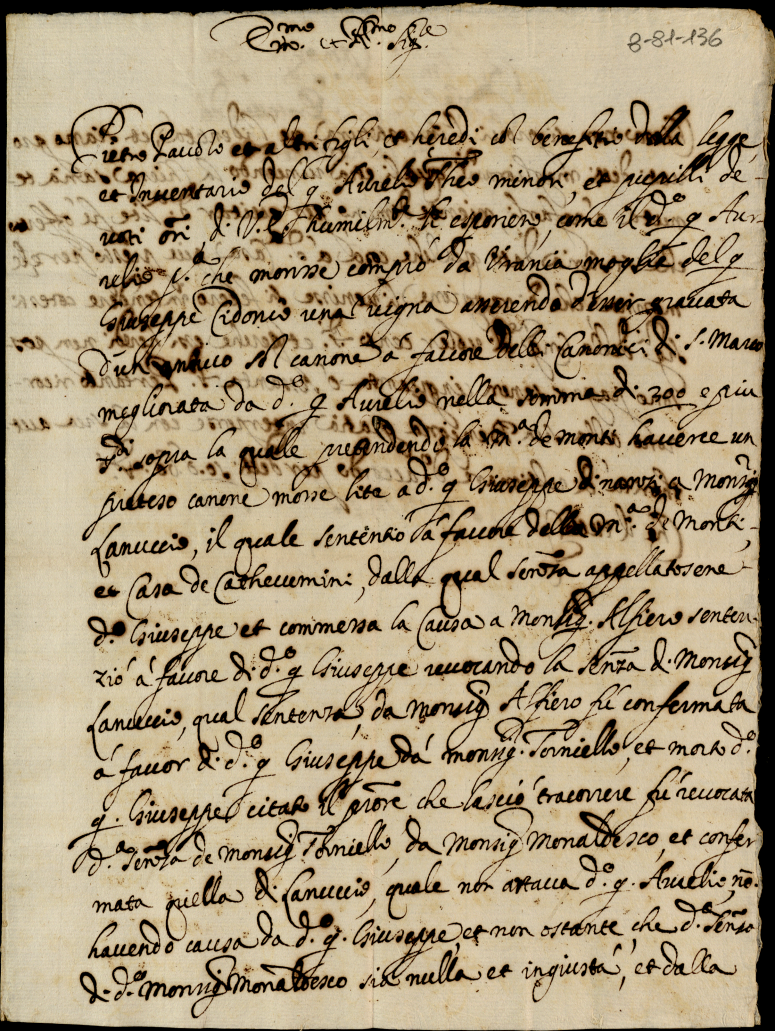 Em.mo et R.mo Sig.re
8-81-136
Pietro Pauolo et altri figli, et heredi col benefitio della legge,
et Inventario del q Aurelio Theo minori, et pupilli de-
uoti ōri, di V. E. humilm.te le esponere, come il d.o q Au-
relio p.a che morisse comprò da Urania moglie del q
Giuseppe Cidonio una uigna asserendo esser grauata
d'un annuo sol canone à fauore delli Canonici di S. Marco
megliorata da d.o q Aurelio nella somma di 300 e piu
sopra la quale pretendendo la M.a de Monti hauerce un
preteso canone mosse lite a d.o q Giuseppe dinanzi a Monsig
Lanuccio, il quale sententiò à fauore della M.a de Monti,
et Casa de Cathecumini, dalla qual senza appellatosene
d.o Giuseppe et commessa la Causa a Monsig. Alfiero senten-
ziò à fauore di d.o q Giuseppe reuocando la senza di Monsig
Lanuccio, qual sentenza, da Monsig Alfiero fù confermata
à fauor di d.o q Giuseppe dà monsig. Torniello, et morto d.o
q. Giuseppe citato il p̄ore che lasciò tracorrere fù reuocata
d.a senza de Monsig Torniello, da Monsig Monaldesco, et confer-
mata quella di Lanuccio, quale non attaca d.o q. Aurelio, nō
hauendo causa da d.o q. Giuseppe, et non ostante, che d.a senza
di d.o Monsig Monaldesco sia nulla et ingiusta, et dalla